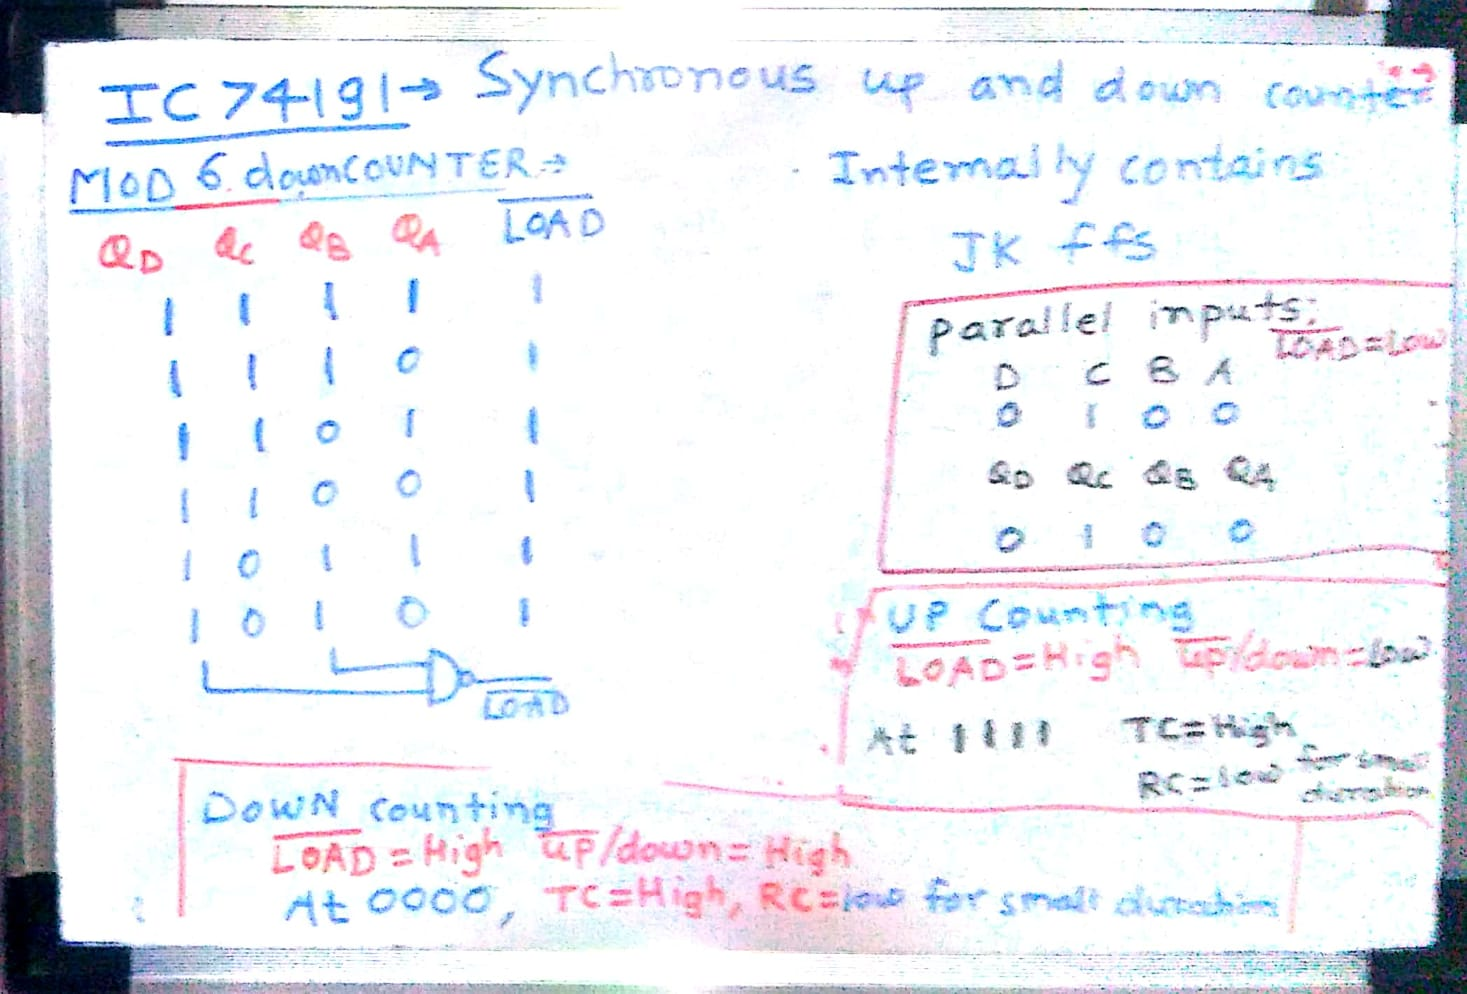 IC 74191→ Synchronous up and down counter
MOD 6 down COUNTER→
Internally contains
JK ffs
QD QC QB QA L̅O̅A̅D̅
1 1 1 1 1
1 1 1 0 1
1 1 0 1 1
1 1 0 0 1
1 0 1 1 1
1 0 1 0 1
L̅O̅A̅D̅
parallel inputs:
L̅O̅A̅D̅=Low
D C B A
0 1 0 0
QD QC QB QA
0 1 0 0
UP Counting
L̅O̅A̅D̅=High u̅p̅/down=Low
At 1111 TC=High
RC=low for small
duration
DOWN counting
L̅O̅A̅D̅=High u̅p̅/down=High
At 0000, TC=High, RC=low for small duration